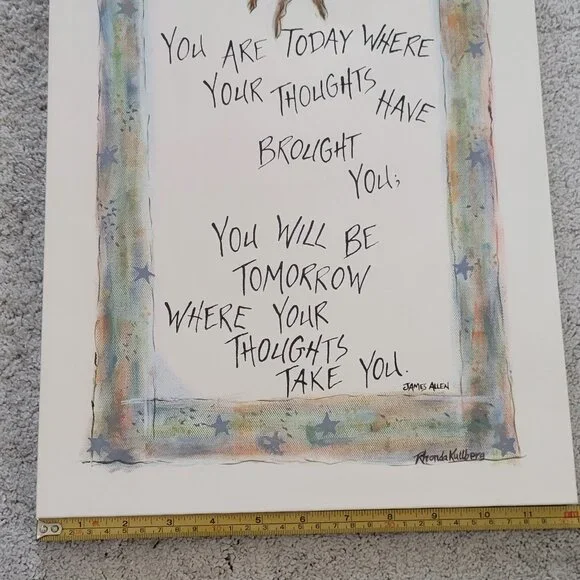 YOU ARE TODAY WHERE
YOUR THOUGHTS HAVE
BROUGHT
YOU;
YOU WILL BE
TOMORROW
WHERE YOUR
THOUGHTS
TAKE YOU.
JAMES ALLEN
Rhonda Kullberg
1 2 3 4 5 6 7 8 9 10 11